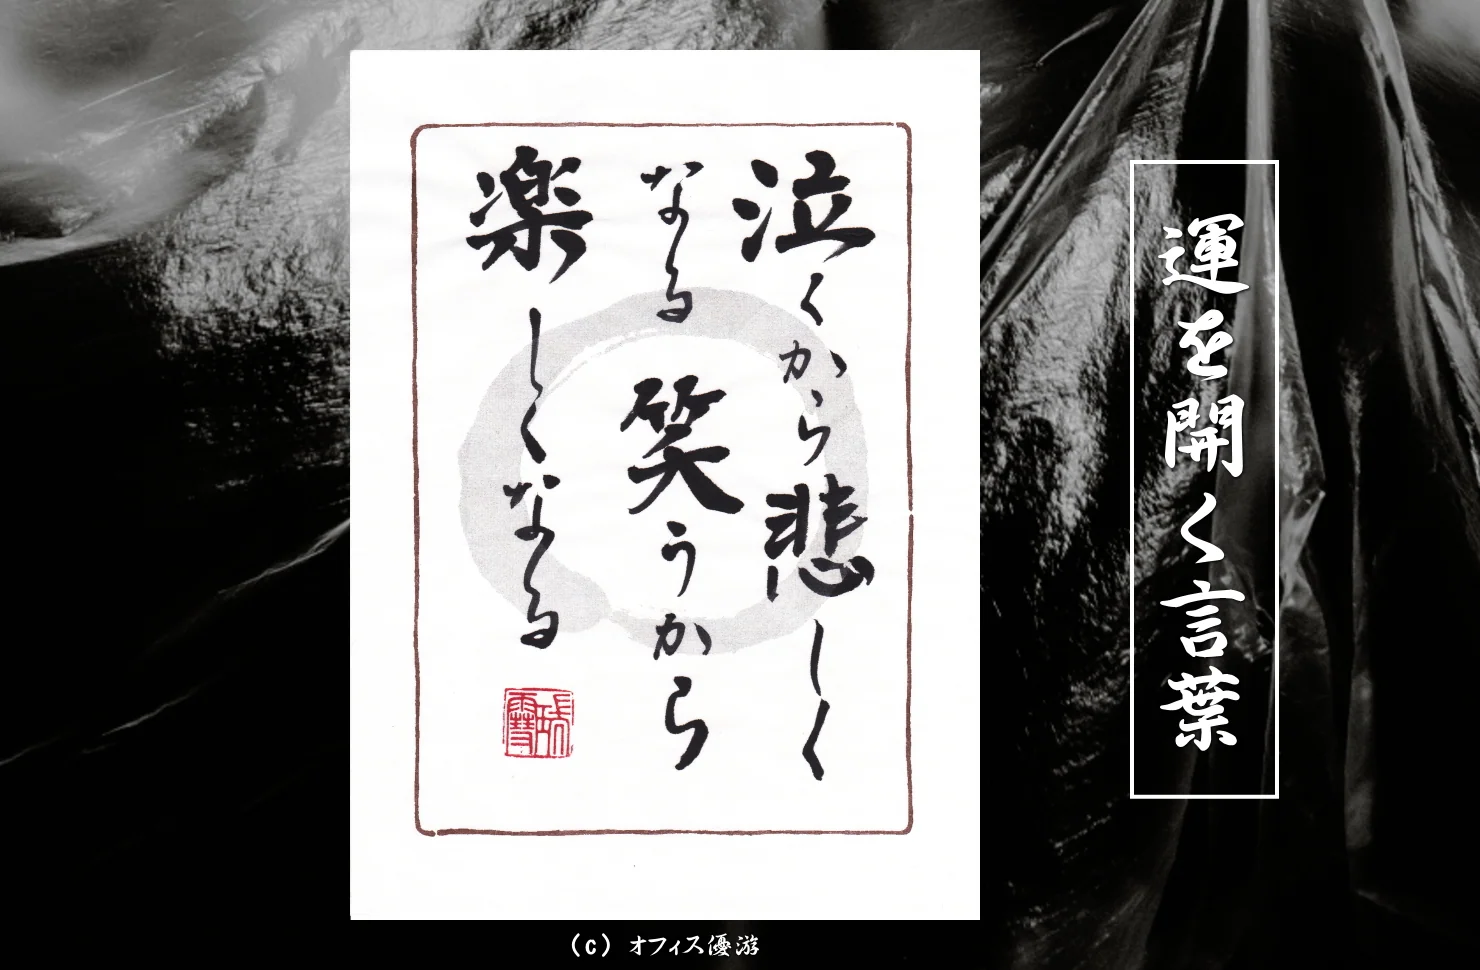 運を開く言葉
泣くから悲しく
なる笑うから
楽しくなる
(c) オフィス優游